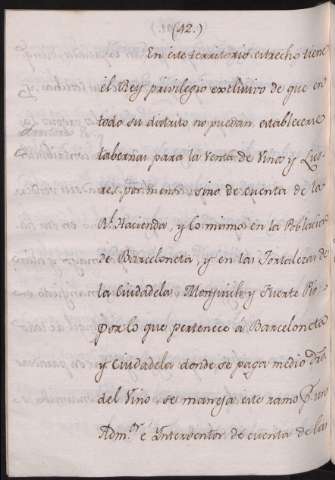 (12.)
En este territorio estrecho tiene
el Rey privilegio exclusivo de que en
todo su distrito no puedan establecerse
tabernas para la venta de Vinos y Lico-
res por menor sino de cuenta de la
Rl. Hacienda, y lo mismo en la Poblacion
de Barceloneta, y en las Fortalezas de
la Ciudadela Monjuich y Fuerte Pio
por lo que pertenece á Barceloneta
y Ciudadela donde se paga medio
del Vino se maneja este ramo p.r un
Adm.or é Interventor de cuenta de la